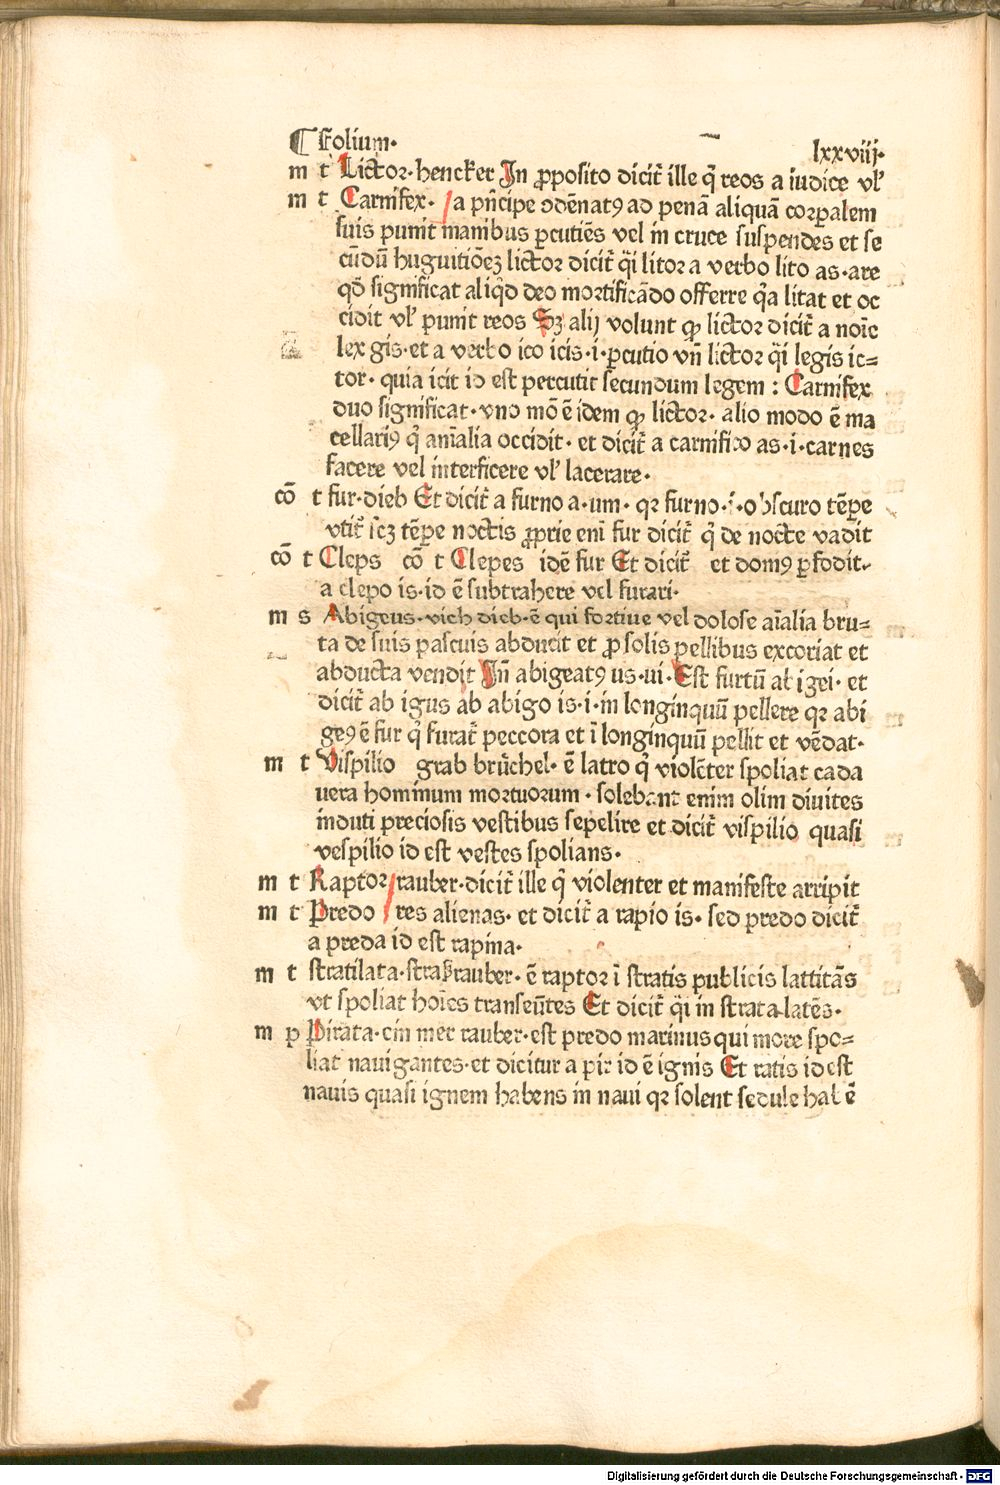 ¶ Folium.
lxxviij.
m t Lictor. hencker In ꝓposito dicit̃ ille q̃ reos a iudice vl̕
m t Carnifex. / a pñcipe ↄdẽnatꝰ ad penã aliquã corꝑalem
suis punit manibus ꝑcutiẽs vel in cruce suspendẽs et se
cũdũ huguitiõeꝫ lictor dicit̃ q̃i litor a verbo lito as. are
qd̕ significat aliq̇d deo mortificãdo offerre q̇a litat et oc
cidit vl̕ punit reos Sꝫ alij volunt ꝙ lictor dicit̃ a noĩe
lex gis. et a verbo ico icis .i. ꝑcutio vñ lictor q̃i legis ic=
tor. quia icit id est percutit secundum legem : Carnifex
duo significat. vno mõ ẽ idem ꝙ lictor. alio modo ẽ ma
cellariꝰ q̇ aĩalia occidit. et dicit̃ a carnifico as .i. carnes
facere vel interficere vl̕ lacerare.
cõ t fur. dieb Et dicit̃ a furno a. um. qꝛ furno .i. obscuro tẽꝑe
vtit̃ sꝫ tẽꝑe noctis ꝓprie eni fur dicit̃ q̇ de nocte vadit
cõ t Cleps cõ t Clepes idẽ fur Et dicit̃ et domꝰ ꝑfodit.
a clepo is. id ẽ subtrahere vel furari.
m s Abigeus. vich dieb. ẽ qui fortiue vel dolose aĩalia bru=
ta de suis pascuis abducit et ꝓ solis pellibus excoriat et
abducta vendit Iñ abigeatꝰ us. ui. Est furtũ abigei. et
dicit̃ ab igus ab abigo is .i. in longinquũ pellere qꝛ abi
geꝰ ẽ fur q̇ furat̃ peccora et ĩ longinquũ pellit et vẽdat.
m t Vispilio grab brüchel. ẽ latro q̇ violẽter spoliat cada
uera hominum mortuorum. solebant enim olim diuites
induti preciosis vestibus sepelire et dicit̃ vispilio quasi
vespilio id est vestes spolians.
m t Raptor / rauber. dicit̃ ille q̇ violenter et manifeste arripit
m t Predo / res alienas. et dicit̃ a rapio is. sed predo dicit̃
a preda id est rapina.
m t stratilata. straßrauber. ẽ raptor ĩ stratis publicis lattitãs
vt spoliat hoĩes transeũtes Et dicit̃ q̃i in strata latẽs.
m p Pirata. ein mer rauber. est predo marinus qui more spo=
liat nauigantes. et dicitur a pir id ẽ ignis Et ratis id est
nauis quasi ignem habens in naui qꝛ solent sedule hab ẽ
Digitalisierung gefördert durch die Deutsche Forschungsgemeinschaft - DFG